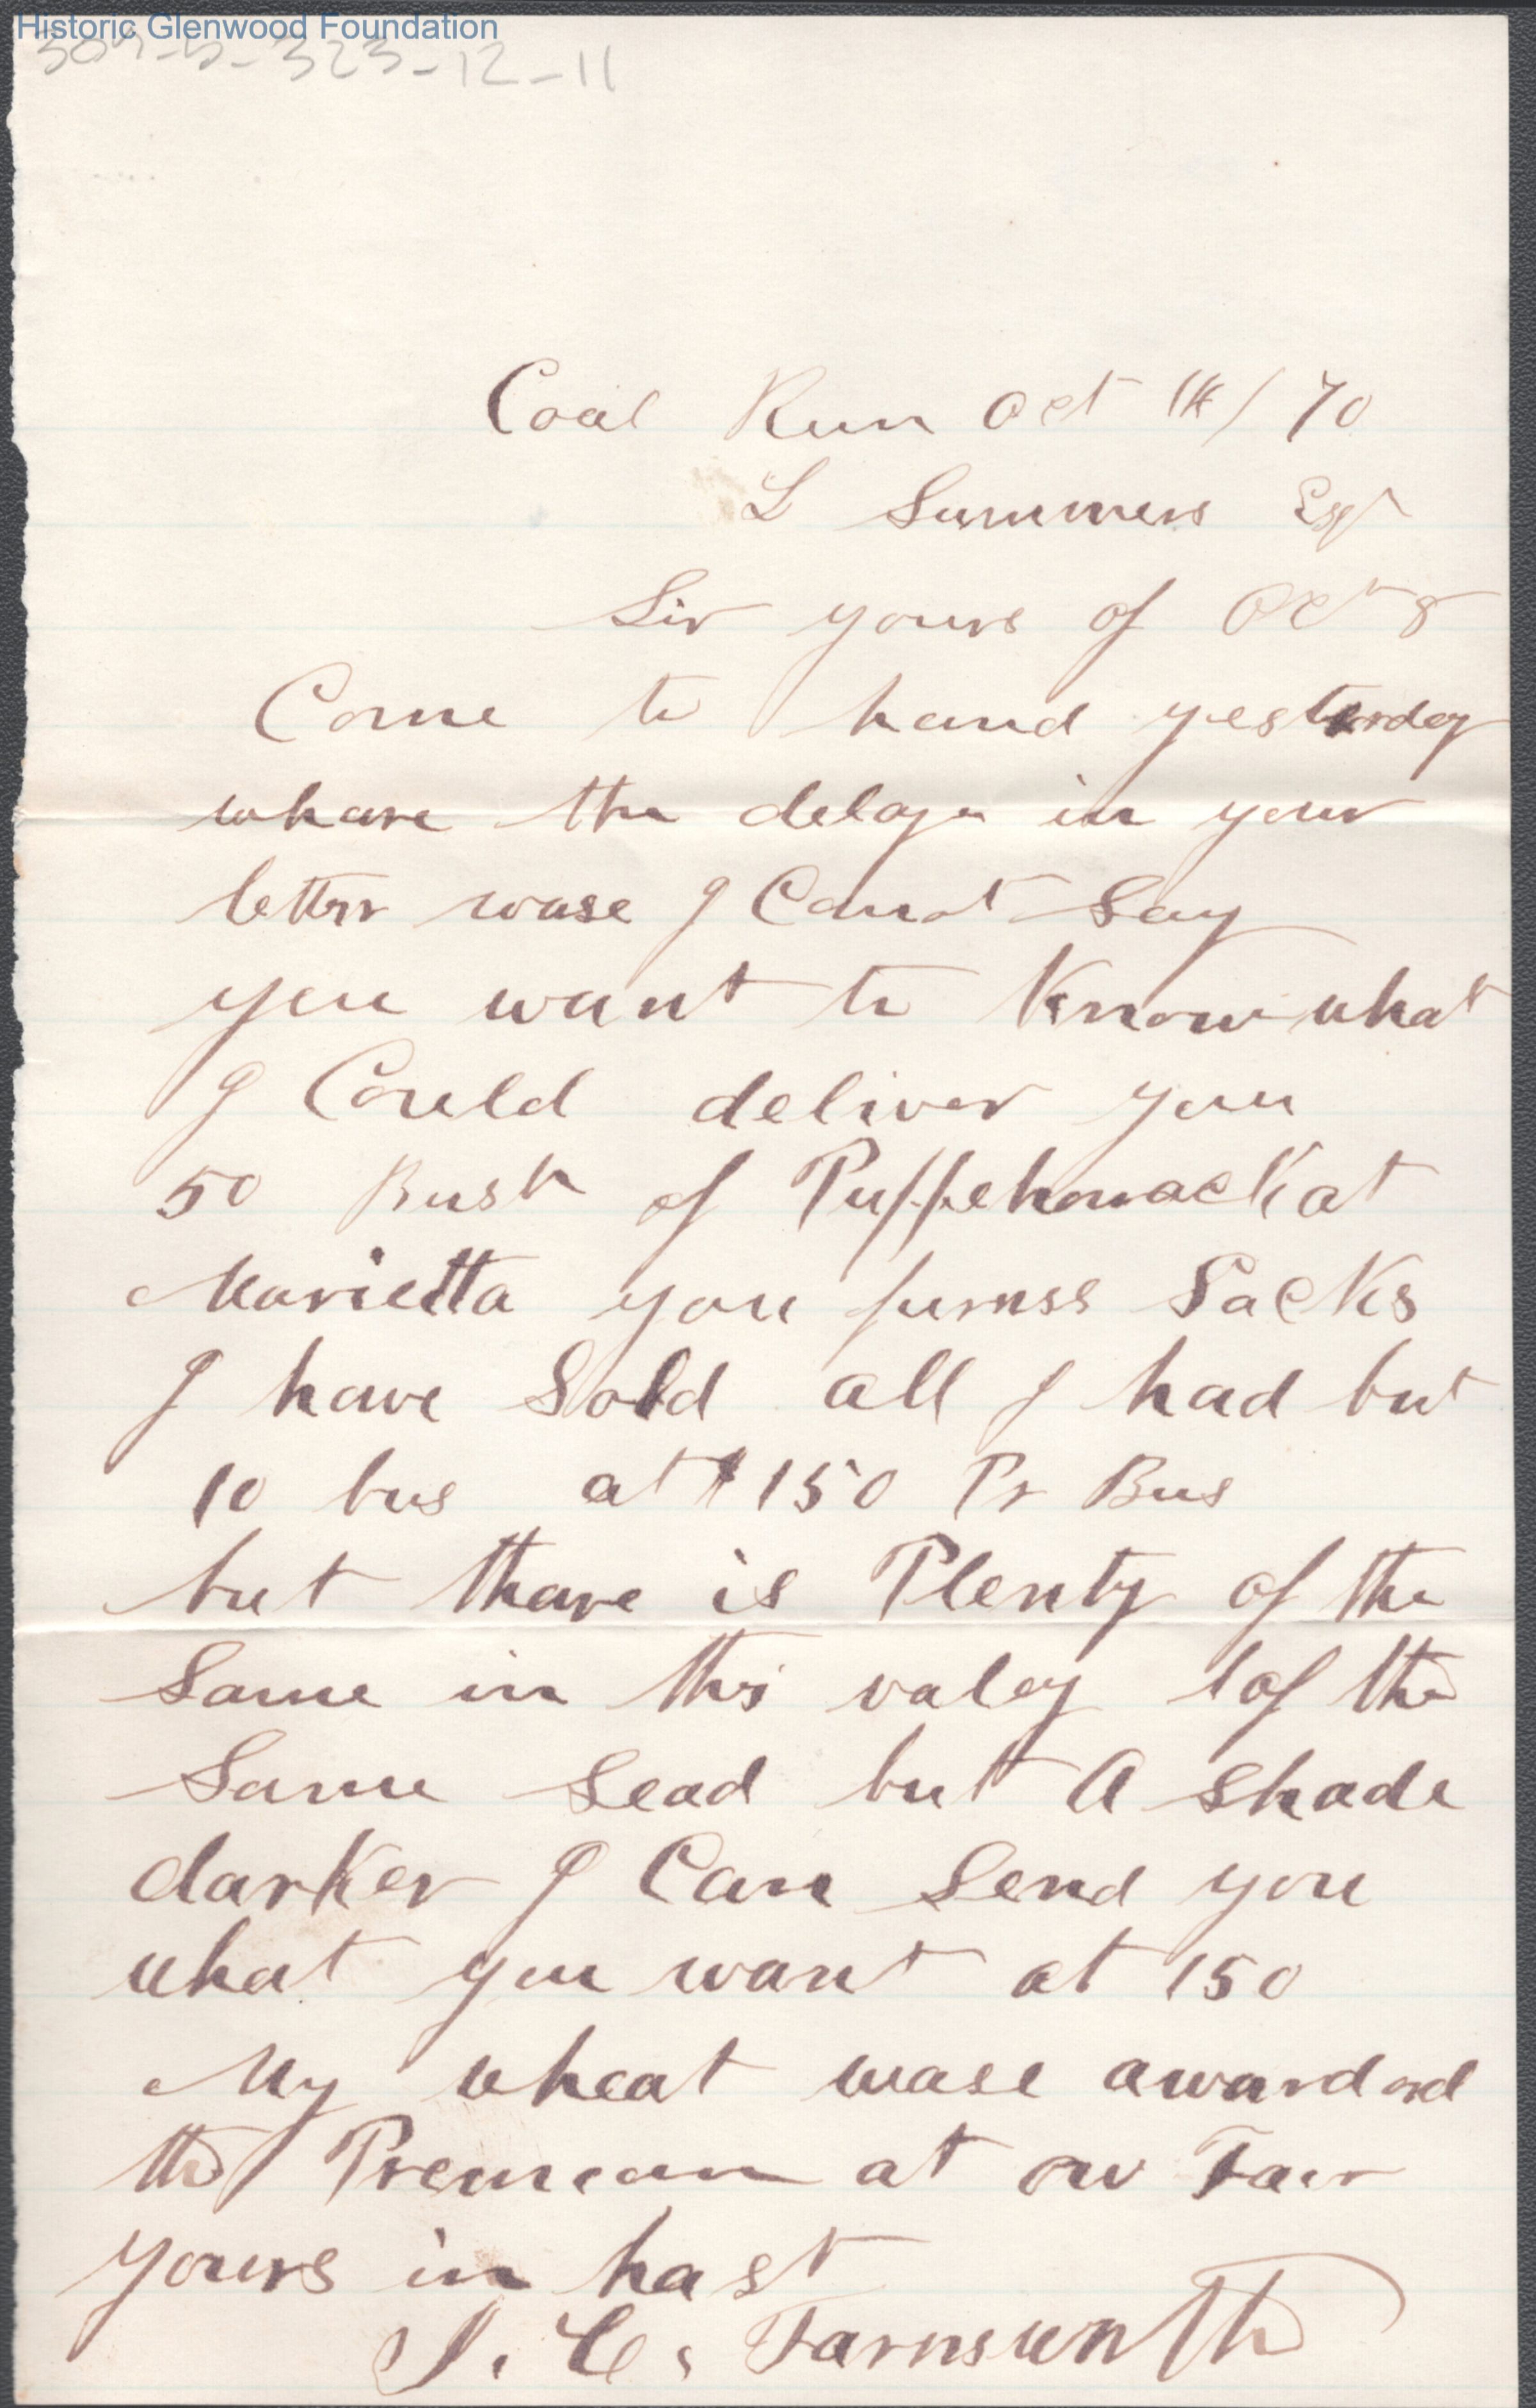 Historic Glenwood Foundation
309-5-323-12-11
Coal Run Oct 14/70
L Summers Esqr
Sir yours of Oct 8
Come to hand yesterday
whare the delaye in your
letter wase I Canot Say
you want to Know what
I Could deliver you
50 Bush of Puppehonack at
Marietta you furnss Sacks
I have Sold all I had but
10 bus at $150 Pr Bus
but thare is Plenty of the
Same in this valey of the
Same Sead but A Shade
darker I Can Send you
what you want at 150
My wheat wase awarded
the Premeam at our Fair
yours in hast
J. C. Farnsworth